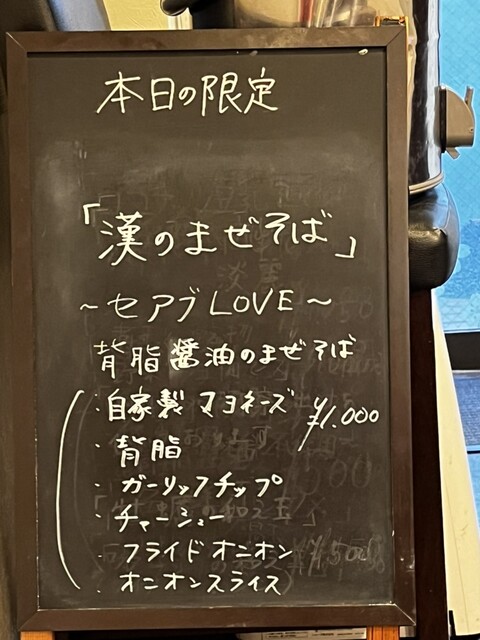 本日の限定
「漢のまぜそば」
~セアブLOVE~
背脂醤油のまぜそば
・自家製マヨネーズ ¥1.000
・背脂
・ガーリックチップ
・チャーシュー
・フライドオニオン
・オニオンスライス